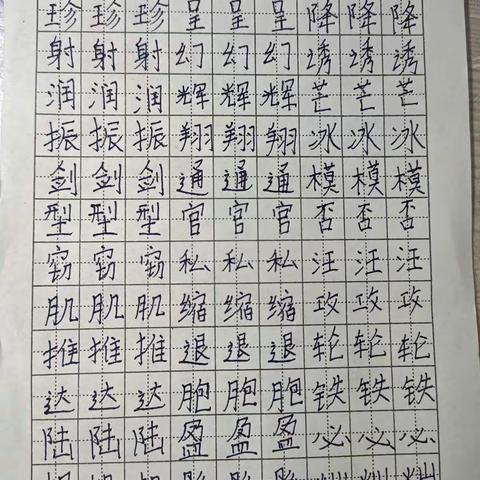 珍珍珍呈呈呈降降降
射射射幻幻幻诱诱诱
润润润辉辉辉芒芒芒
振振振翔翔翔冰冰冰
剑剑剑通通通模模模
型型型官官官否否否
窃窃窃私私私汪汪汪
肌肌肌缩缩缩攻攻攻
推推推退退退轮轮轮
达达达胞胞胞铁铁铁
陆陆陆盈盈盈必必必